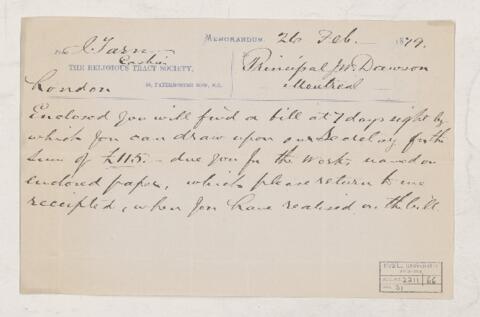 MEMORANDUM. 26 Feb. 1879.
C Tarn
Cashier
THE RELIGIOUS TRACT SOCIETY,
56, PATERNOSTER ROW, E.C.
London
Principal J.W. Dawson
Montreal
Enclosed you will find a bill at 7 days sight by
which you can draw upon our Secretary for the
sum of £115. - due you for the works named on
enclosed paper, which please return to me
receipted, when you have realised on the bill.
ARCHIVES
2211 66
31